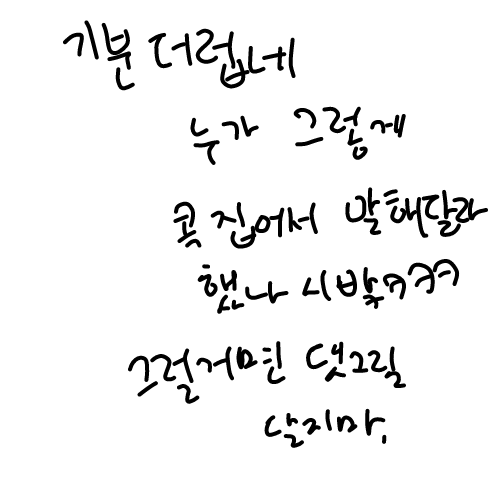 기분 더럽네
누가 그렇게
콕 집어서 말해달라
했나 시밬ㅋㅋㅋ
그럴거면 댓글
달지마.